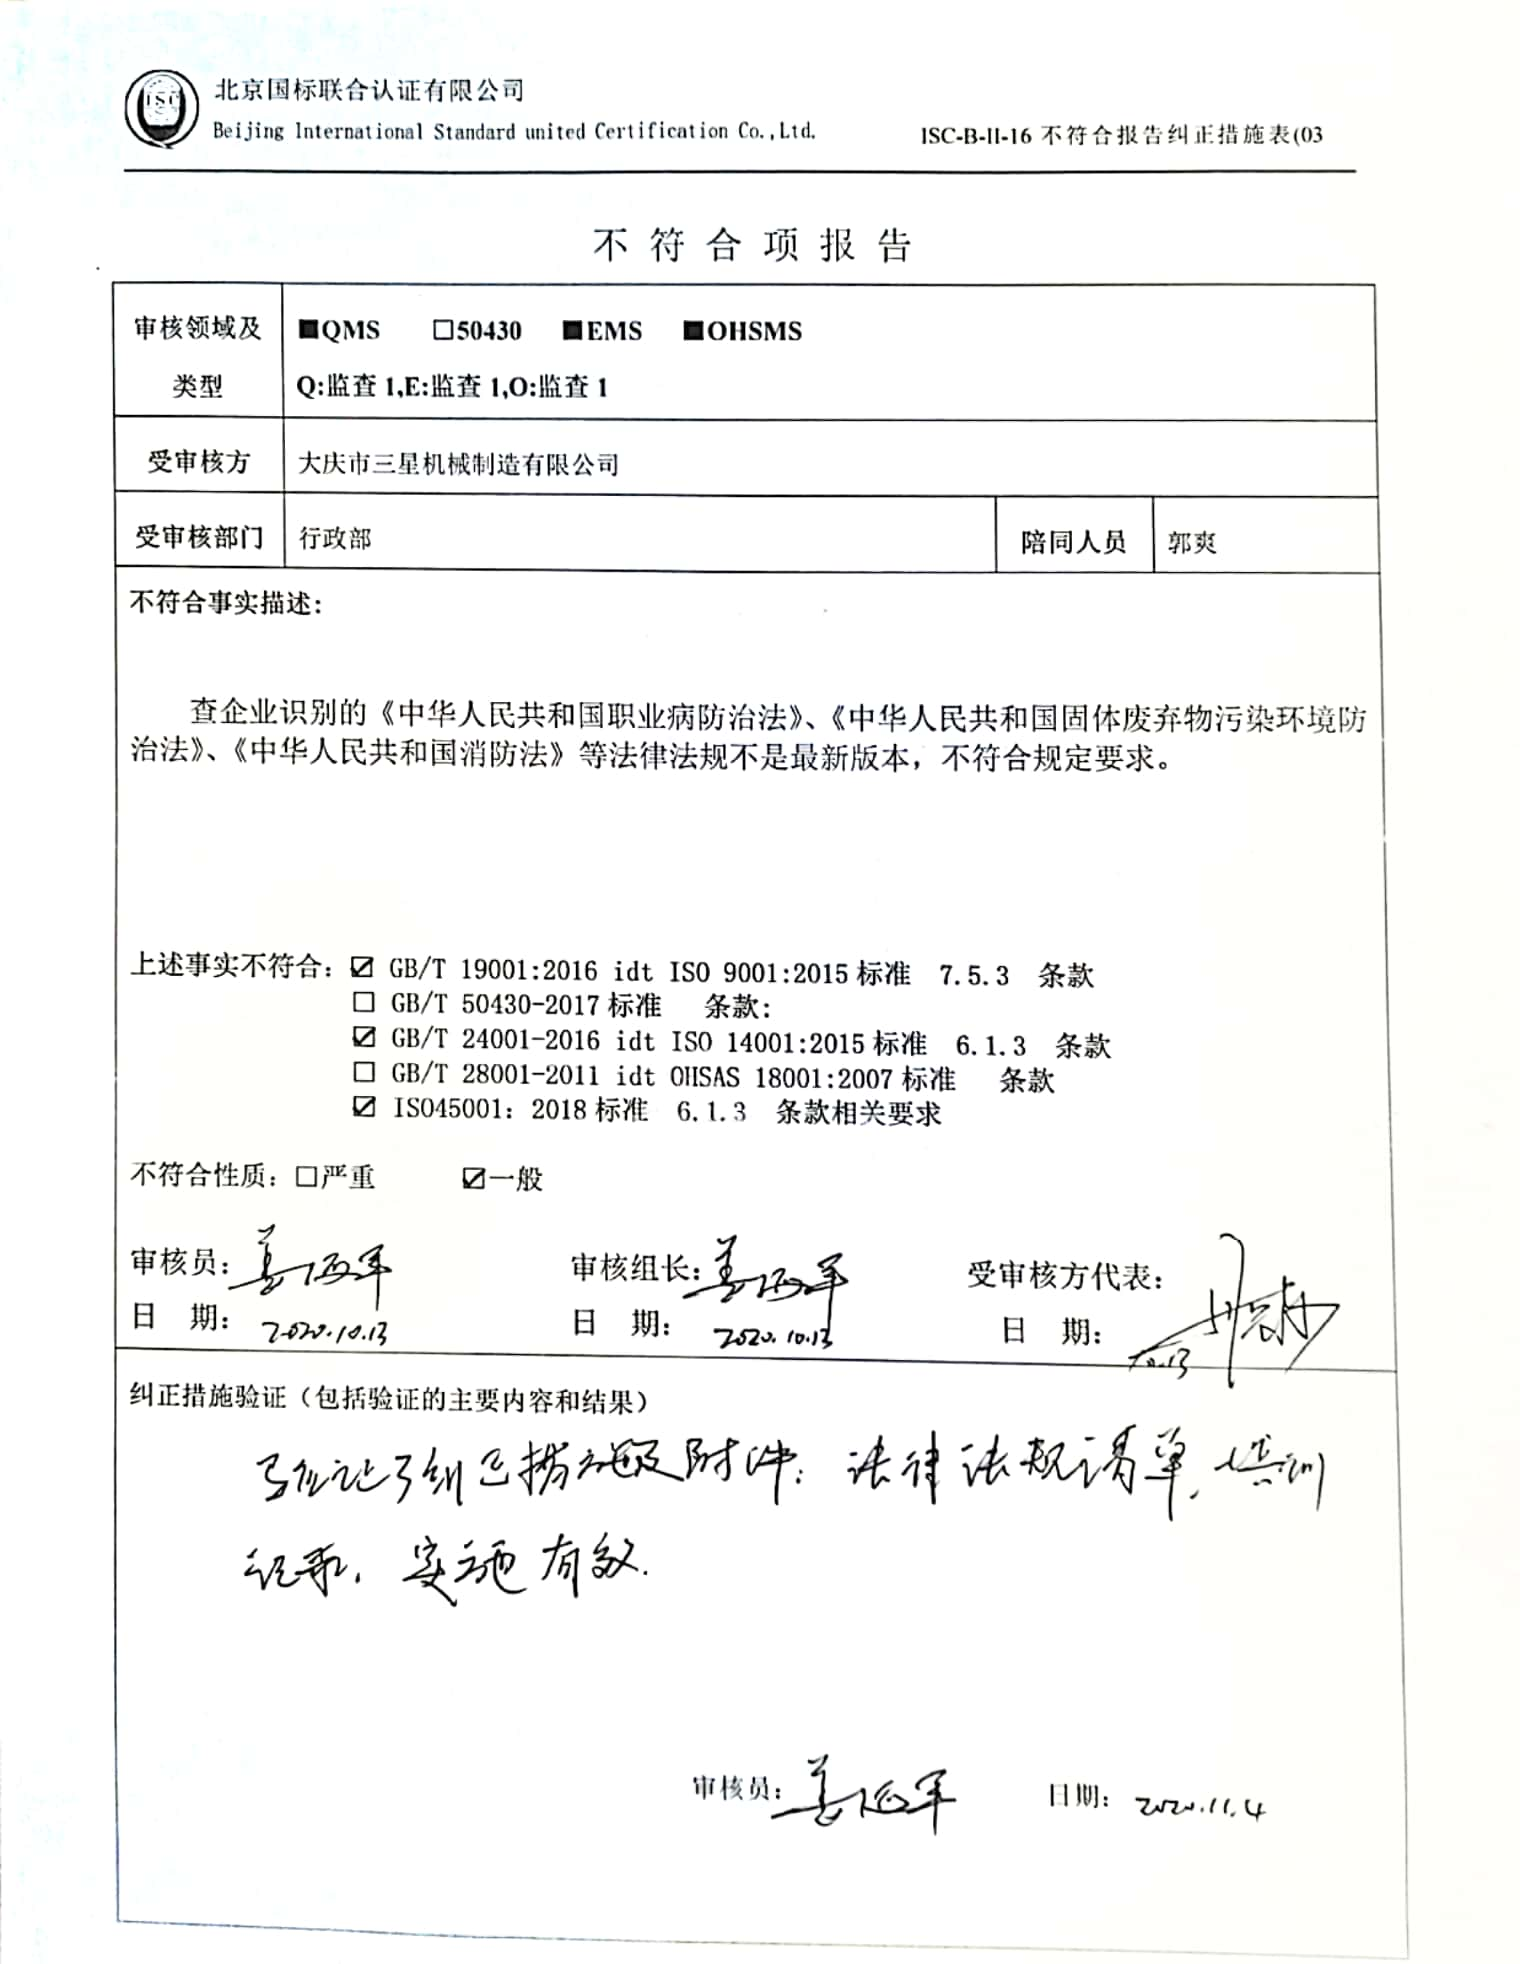 ISC
北京国标联合认证有限公司
Beijing International Standard united Certification Co.,Ltd.
ISC-B-II-16 不符合报告纠正措施表(03
不符合项报告
审核领域及类型
■QMS □50430 ■EMS ■OHSMS
Q:监查 1,E:监查 1,O:监查 1
受审核方 大庆市三星机械制造有限公司
受审核部门 行政部 陪同人员 郭爽
不符合事实描述:
查企业识别的《中华人民共和国职业病防治法》、《中华人民共和国固体废弃物污染环境防
治法》、《中华人民共和国消防法》等法律法规不是最新版本，不符合规定要求。
上述事实不符合: ☑ GB/T 19001:2016 idt ISO 9001:2015 标准 7.5.3 条款
□ GB/T 50430-2017 标准 条款:
☑ GB/T 24001-2016 idt ISO 14001:2015 标准 6.1.3 条款
□ GB/T 28001-2011 idt OHSAS 18001:2007 标准 条款
☑ ISO45001: 2018 标准 6.1.3 条款相关要求
不符合性质: □严重 ☑一般
审核员: 审核组长: 受审核方代表:
日 期: 2020.10.13 日 期: 2020.10.13 日 期: 10.13
纠正措施验证（包括验证的主要内容和结果）
验证了纠正措施及附件: 法律法规清单, 培训
记录, 实施有效.
审核员: 日期: 2020.11.4